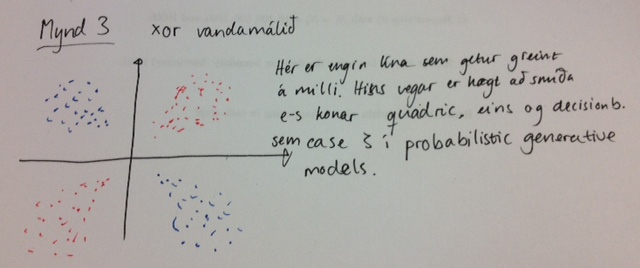 Mynd 3 xor vandamálið
Hér er engin lína sem getur greint
á milli. Hins vegar er hægt að smíða
e-s konar quadric, eins og decisionb.
sem case 3 í probabilistic generative
models.